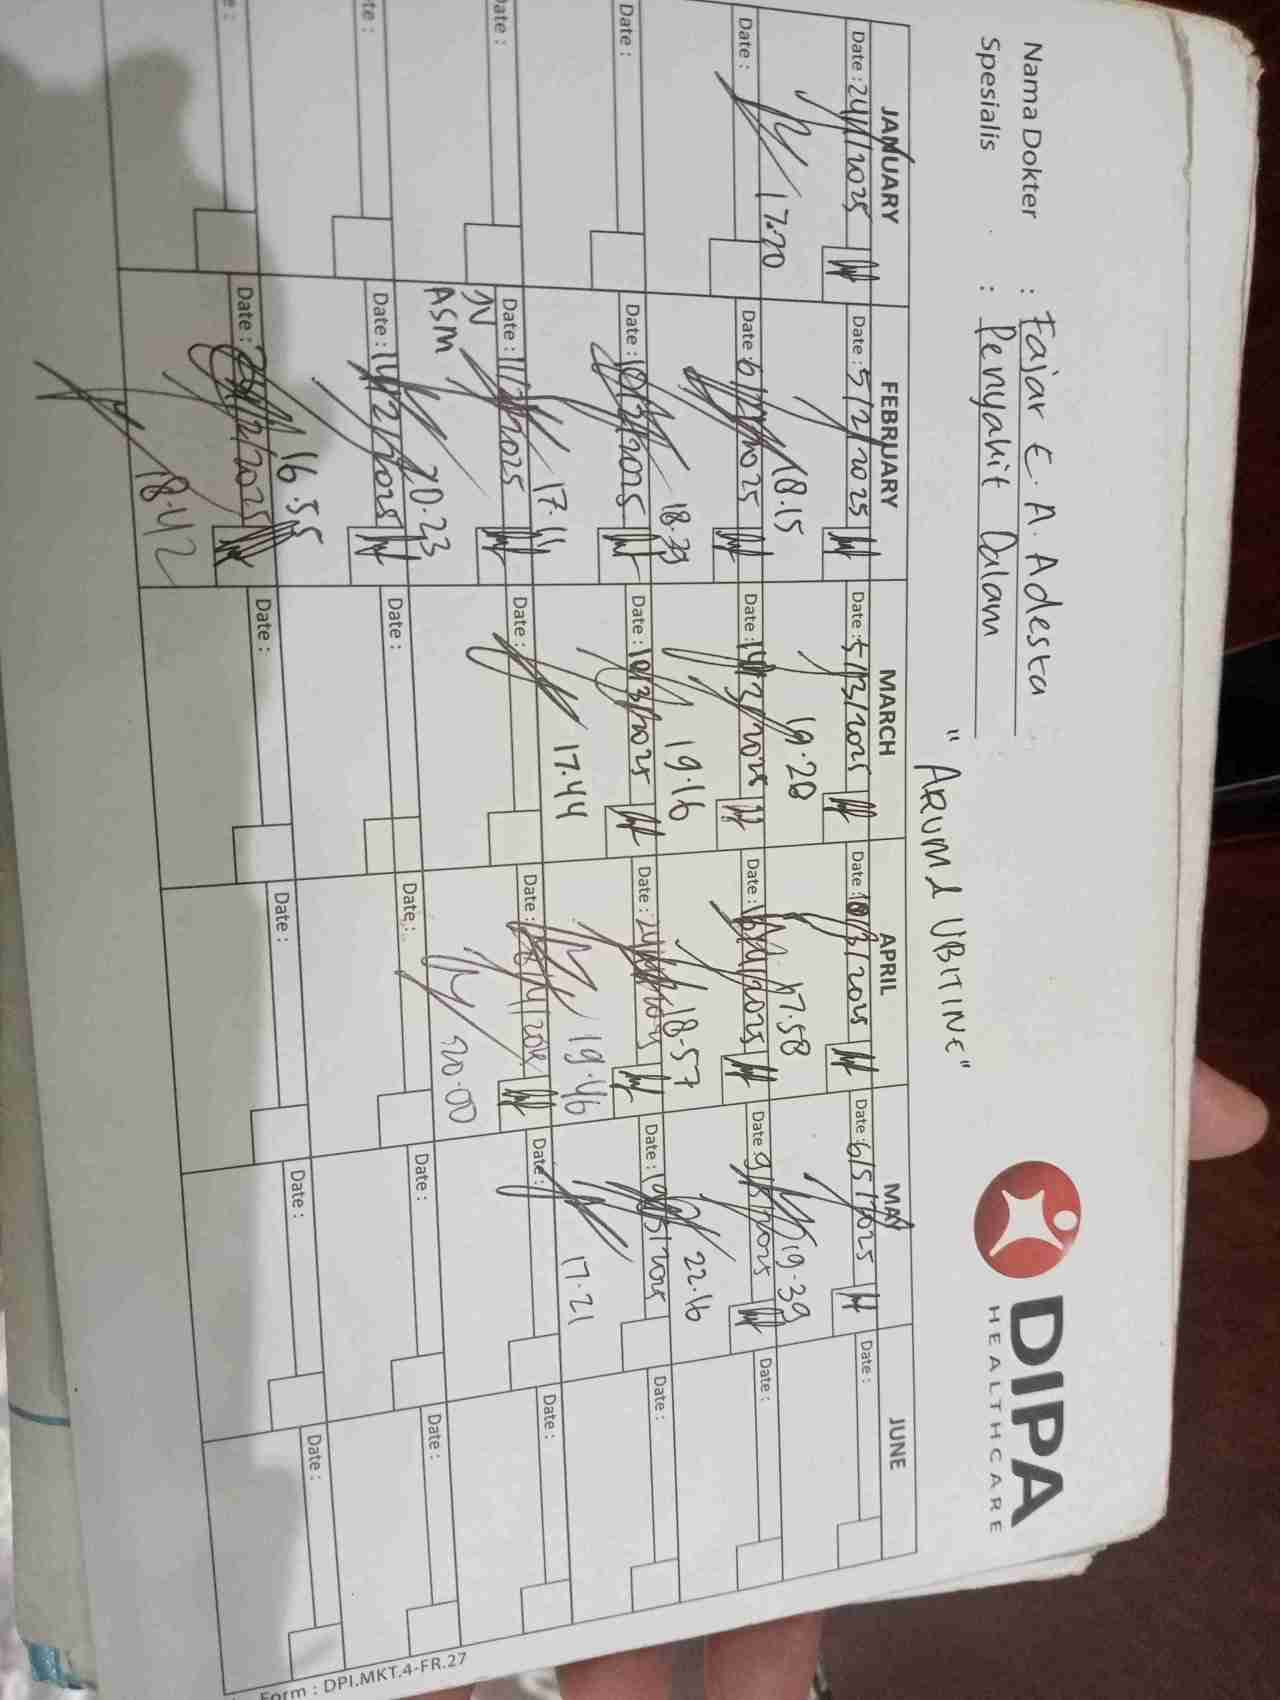 DIPA
HEALTHCARE
Nama Dokter : Fajar E. A. Adesta
Spesialis : Penyakit Dalam
"ARUMI UBITINE"
JANUARY FEBRUARY MARCH APRIL MAY JUNE
Date : 24/1/2025 Date : 5/2/2025 Date : 5/3/2025 Date : 10/3/2025 Date : 6/5/2025 Date :
17.20 18.15 19.20 17.58 19.39
Date : Date : 6/2/2025 Date : 14/3/2025 Date : Date : 9/5/2025 Date :
18.39 19.16 18-57 22.16
Date : Date : 10/2/2025 Date : 10/3/2025 Date : Date : Date :
17.11 17.44 19.46 17.21
Date : Date : 11/2/2025 Date : Date : Date : Date :
ASM 20.23 20.00
Date : 14/2/2025 Date : Date : Date : Date :
16.55
Date : Date : Date : Date : Date :
18.42
Form : DPI.MKT.4-FR.27